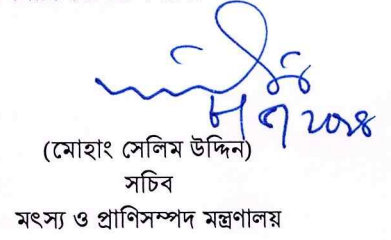 (মোহাং সেলিম উদ্দিন)
সচিব
মৎস্য ও প্রাণিসম্পদ মন্ত্রণালয়